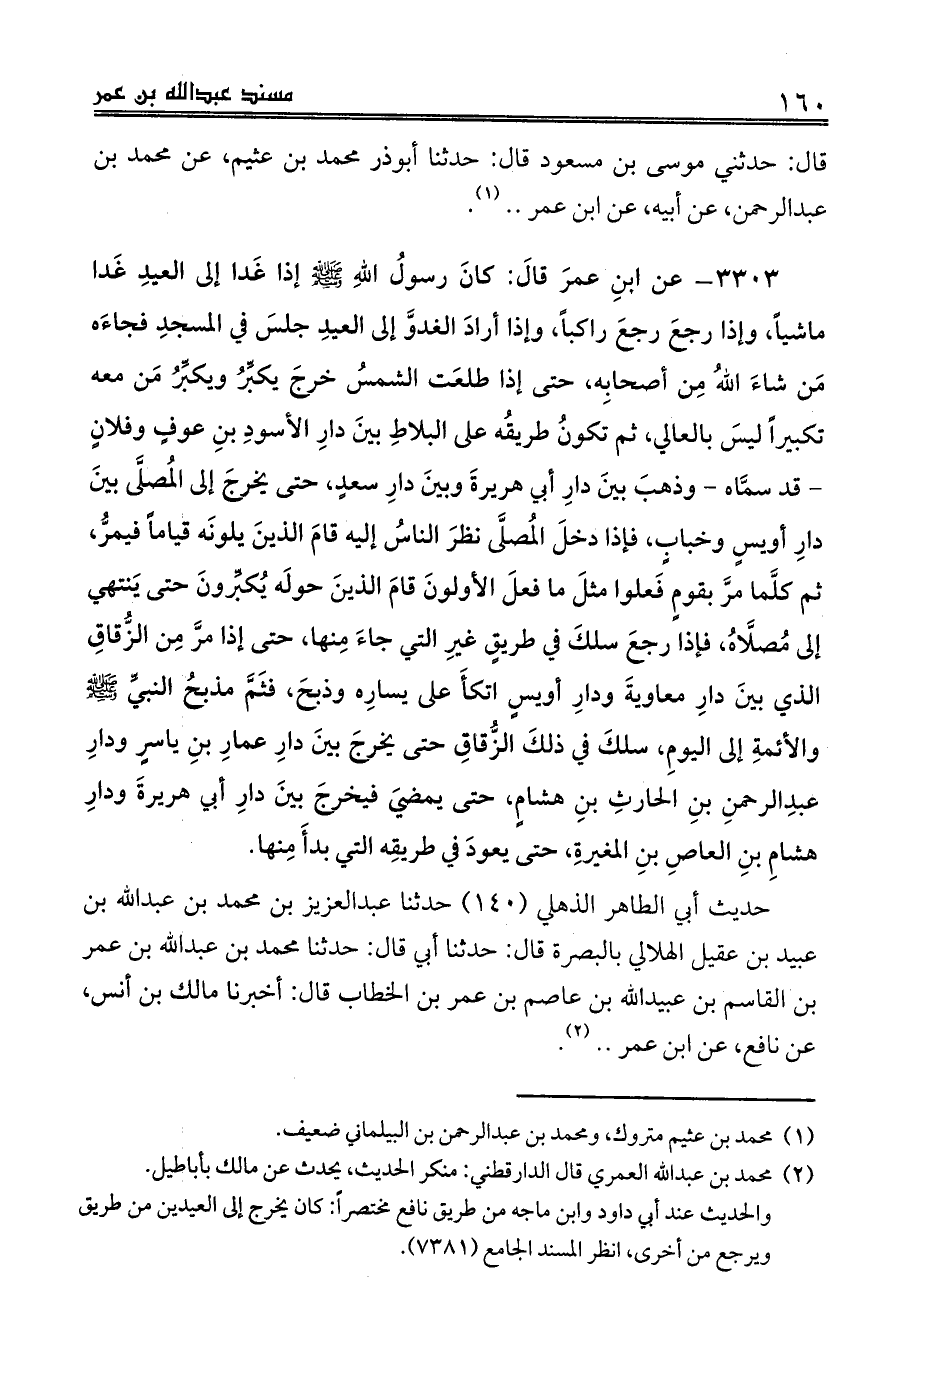 ١٦٠
مسند عبدالله بن عمر
قال: حدثني موسى بن مسعود قال: حدثنا أبوذر محمد بن عثيم، عن محمد بن
عبدالرحمن، عن أبيه، عن ابن عمر .. (١).
٣٣٠٣ــ عن ابنِ عمرَ قالَ: كانَ رسولُ اللهِ ﷺ إذا غَدا إلى العيدِ غَدا
ماشياً، وإذا رجعَ رجعَ راكباً، وإذا أرادَ الغدوَّ إلى العيدِ جلسَ في المسجدِ فجاءَه
مَن شاءَ اللهُ مِن أصحابِه، حتى إذا طلعَت الشمسُ خرجَ يكبِّرُ ويكبِّرُ مَن معه
تكبيراً ليسَ بالعالي، ثم تكونُ طريقُه على البلاطِ بينَ دارِ الأسودِ بنِ عوفٍ وفلانٍ
- قد سمَّاه - وذهبَ بينَ دارِ أبي هريرةَ وبينَ دارِ سعدٍ، حتى يخرجَ إلى المُصلَّى بينَ
دارِ أويسٍ وخبابٍ، فإذا دخلَ المُصلَّى نظرَ الناسُ إليه قامَ الذينَ يلونَه قياماً فيمرُّ،
ثم كلَّما مرَّ بقومٍ فَعلوا مثلَ ما فعلَ الأولونَ قامَ الذينَ حولَه يُكبِّرونَ حتى يَنتهي
إلى مُصلَّاهُ، فإذا رجعَ سلكَ في طريقٍ غيرِ التي جاءَ مِنها، حتى إذا مرَّ مِن الزُّقاقِ
الذي بينَ دارِ معاويةَ ودارِ أويسٍ اتكأَ على يسارِه وذبحَ، فثَمَّ مذبحُ النبيِّ ﷺ
والأئمةِ إلى اليومِ، سلكَ في ذلكَ الزُّقاقِ حتى يخرجَ بينَ دارِ عمارِ بنِ ياسرٍ ودارِ
عبدِالرحمنِ بنِ الحارثِ بنِ هشامٍ، حتى يمضيَ فيخرجَ بينَ دارِ أبي هريرةَ ودارِ
هشامِ بنِ العاصِ بنِ المغيرةِ، حتى يعودَ في طريقِه التي بدأَ مِنها.
حديث أبي الطاهر الذهلي (١٤٠) حدثنا عبدالعزيز بن محمد بن عبدالله بن
عبيد بن عقيل الهلالي بالبصرة قال: حدثنا أبي قال: حدثنا محمد بن عبدالله بن عمر
بن القاسم بن عبيدالله بن عاصم بن عمر بن الخطاب قال: أخبرنا مالك بن أنس،
عن نافع، عن ابن عمر .. (٢).
(١) محمد بن عثيم متروك، ومحمد بن عبدالرحمن بن البيلماني ضعيف.
(٢) محمد بن عبدالله العمري قال الدارقطني: منكر الحديث، يحدث عن مالك بأباطيل.
والحديث عند أبي داود وابن ماجه من طريق نافع مختصراً: كان يخرج إلى العيدين من طريق
ويرجع من أخرى، انظر المسند الجامع (٧٣٨١).